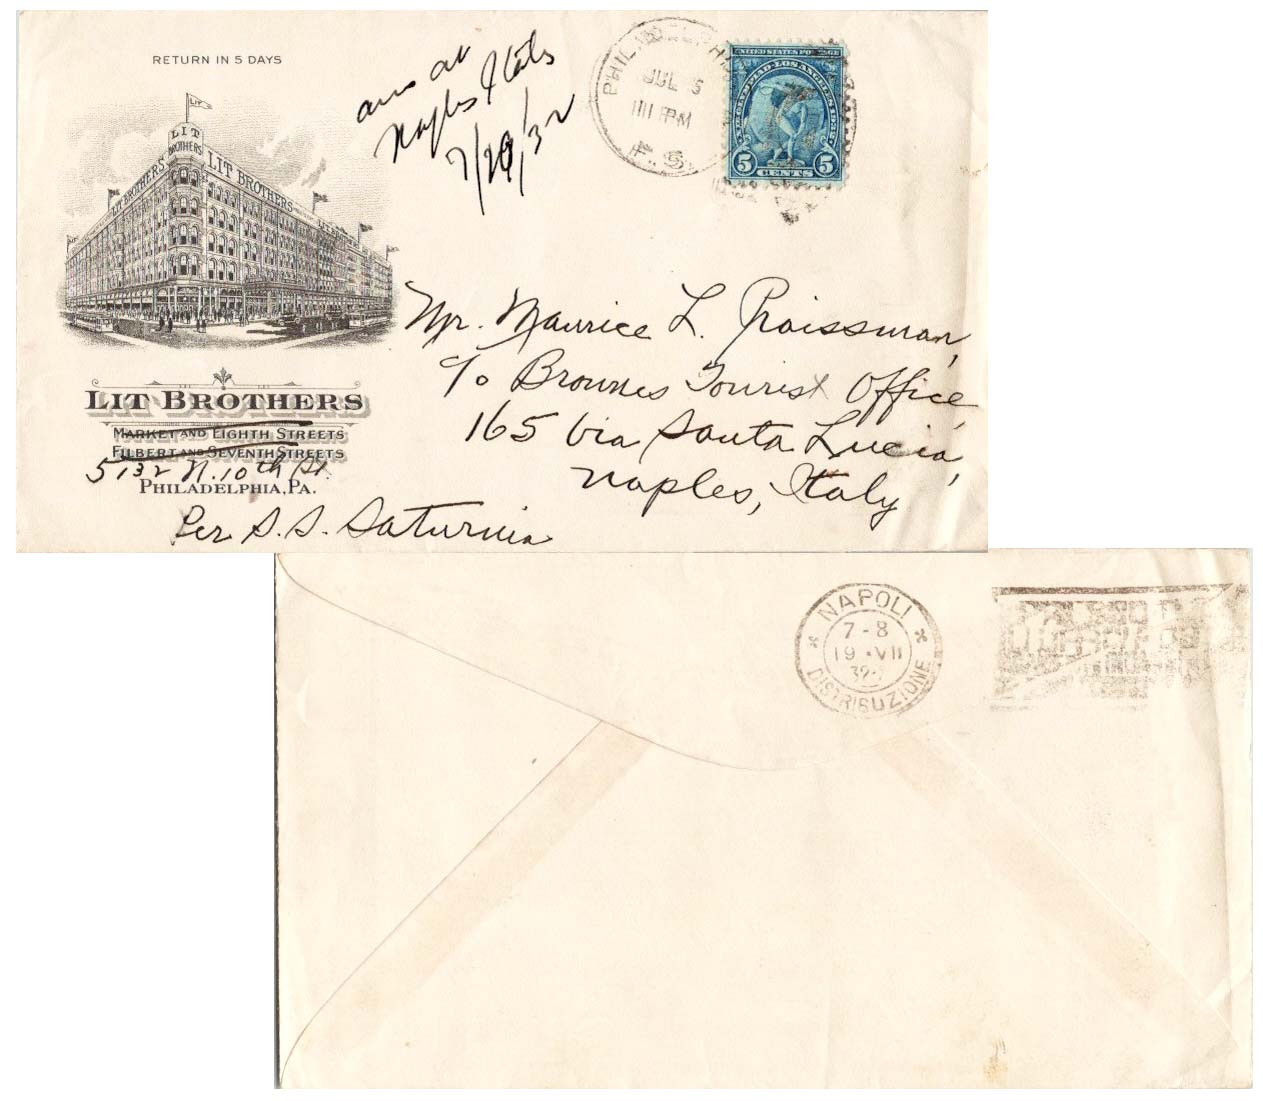 RETURN IN 5 DAYS
LIT
LIT
BROTHERS
LIT BROTHERS
LIT BROTHERS
LIT BROTHERS
MARKET AND EIGHTH STREETS
FILBERT AND SEVENTH STREETS
5132 N. 10th St.
PHILADELPHIA, PA.
Per S. S. Saturnia
at
Naples Italy
7/20/32
PHILADELPHIA
JUL
PM
UNITED STATES POSTAGE
Xth OLYMPIAD-LOS ANGELES 1932
5 CENTS 5
Mr. Maurice L. Praissman,
c/o Brownes Tourist Office,
165 Via Santa Lucia,
Naples, Italy
NAPOLI
7-8
19·VII
32
DISTRIBUZIONE